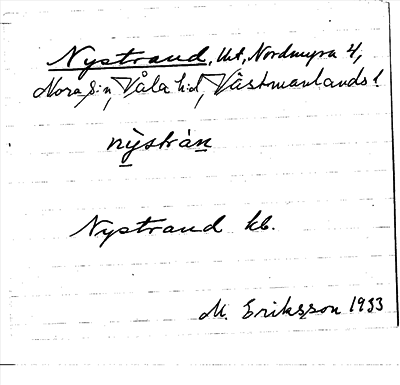 Nystrand, Ut, Nordmyra 4,
Nora s:n, Våla hd, Västmanlands l.
nỳstrán
Nystrand kb.
M. Eriksson 1933